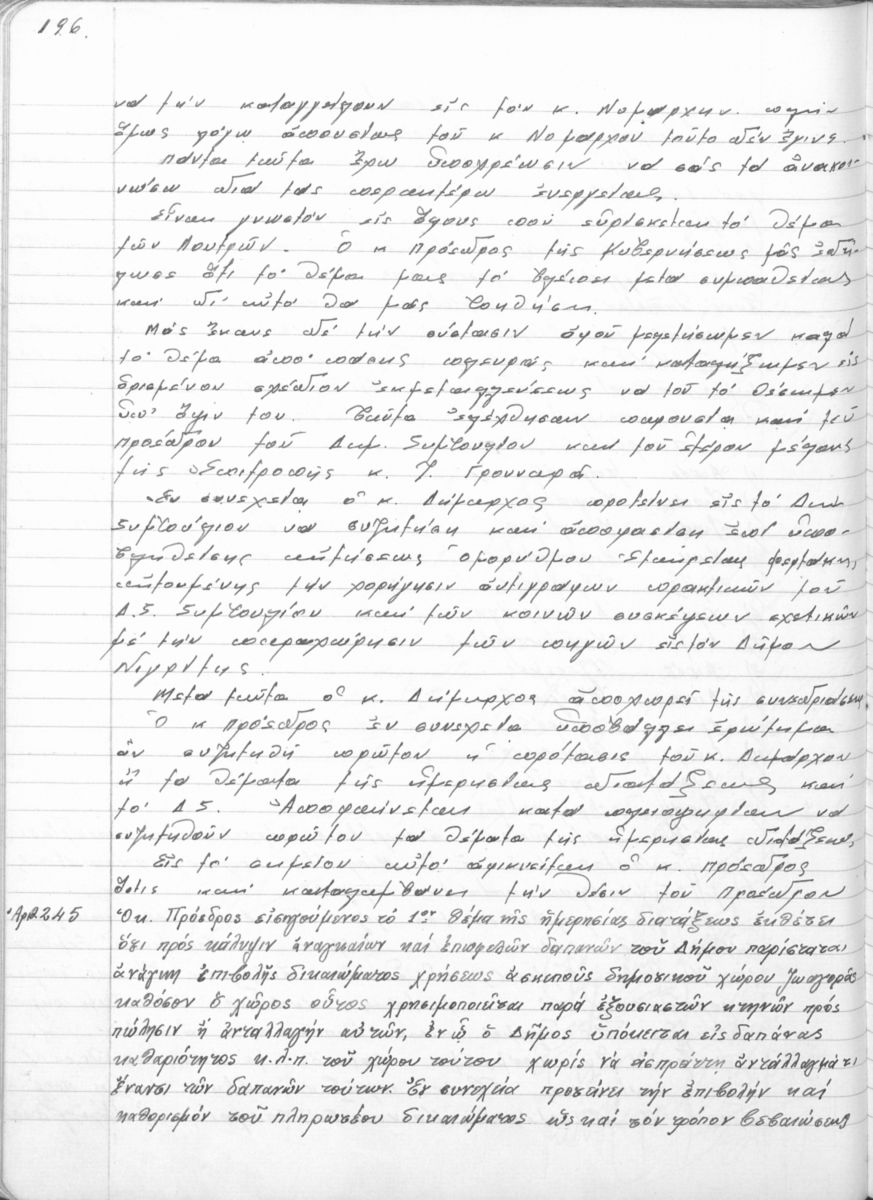 196.
νά τήν καταγγείλουν εἰς τόν κ. Νομάρχην πλήν
ὅμως λόγω ἀπουσίας τοῦ κ Νομάρχου τοῦτο δέν ἔγινε.
Πάντα ταῦτα ἔχω ὑποχρέωσιν νά σᾶς τά ἀνακοι-
νώσω διά τάς περαιτέρω ἐνεργείας.
Εἶναι γνωστόν εἰς ὅλους ποῦ εὑρίσκεται τό θέμα
τῶν Λουτρῶν. Ὁ κ Πρόεδρος τῆς Κυβερνήσεως μᾶς ἐδή-
λωσε ὅτι τό θέμα μας τό βλέπει μετά συμπαθείας
καί δι' αὐτό θά μᾶς βοηθήση.
Μᾶς ἔκανε δέ τήν σύστασιν ἀφοῦ μελετήσωμεν καλά
τό θέμα ἀπό πάσης πλευρᾶς καί καταλήξωμεν εἰς
ὡρισμένον σχέδιον ἐκμεταλλεύσεως νά τοῦ τό θέσωμεν
ὑπ' ὄψιν του. Ταῦτα ἐλέχθησαν παρουσία καί τοῦ
Προέδρου τοῦ Δημ. Συμβουλίου καί τοῦ ἑτέρου μέλους
τῆς Ἐπιτροπῆς κ. Γρουναρᾶ.
Ἐν συνεχεία ὁ κ. Δήμαρχος προτείνει εἰς τό Δημ
Συμβούλιον νά συζητήση καί ἀποφασίση ἐπί ὑπο-
βληθείσης αἰτήσεως ὁμορύθμου Ἑταιρείας
αἰτουμένης τήν χορήγησιν ἀντιγράφων πρακτικῶν τοῦ
Δ.Σ. Συμβουλίου καί τῶν κοινῶν συσκέψεων σχετικῶν
μέ τήν παραχώρησιν τῶν πηγῶν εἰς τόν Δῆμον
Νιγρίτης.
Μετά ταῦτα ὁ κ. Δήμαρχος ἀποχωρεῖ τῆς συνεδριάσεως
Ὁ κ Πρόεδρος ἐν συνεχεία ὑποβάλλει ἐρώτημα
ἄν συζητηθῆ πρῶτον ἡ πρότασις τοῦ κ. Δημάρχου
ἤ τά θέματα τῆς ἡμερησίας διατάξεως καί
τό Δ.Σ. Ἀποφαίνεται κατά πλειοψηφίαν νά
συζητηθοῦν πρῶτον τά θέματα τῆς ἡμερησίας διατάξεως
Εἰς τό σημεῖον αὐτό ἀφικνεῖται ὁ κ. Πρόεδρος
ὅστις καί καταλαμβάνει τήν θέσιν τοῦ Προέδρου
Ἀριθ. 245 Ὁ κ. Πρόεδρος εἰσηγούμενος τό 1ον θέμα τῆς ἡμερησίας διατάξεως ἐκθέτει
ὅτι πρός κάλυψιν ἀναγκαίων καί ἐπωφελῶν δαπανῶν τοῦ Δήμου παρίσταται
ἀνάγκη ἐπιβολῆς δικαιώματος χρήσεως ἀσκεποῦς δημοτικοῦ χώρου ζωαγορᾶς
καθόσον ὁ χῶρος οὗτος χρησιμοποιεῖται παρά ἐξουσιαστῶν κτηνῶν πρός
πώλησιν ἤ ἀνταλλαγήν αὐτῶν, ἐν ᾧ ὁ Δῆμος ὑπόκειται εἰς δαπάνας
καθαριότητος κ.λ.π. τοῦ χώρου τούτου χωρίς νά εἰσπράττη ἀντάλλαγμά τι
ἔναντι τῶν δαπανῶν τούτων. Ἐν συνεχεία προτείνει τήν ἐπιβολήν καί
καθορισμόν τοῦ πληρωτέου δικαιώματος ὡς καί τόν τρόπον βεβαιώσεως